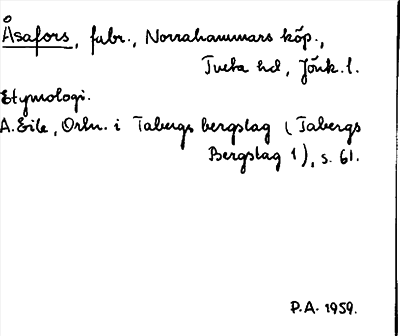 Åsafors, fabr., Norrahammars köp.,
Tveta hd, Jönk. l.
Etymologi.
A. Eile, Ortn. i Tabergs bergslag (Tabergs
Bergslag 1), s. 61.
P.A. 1959.